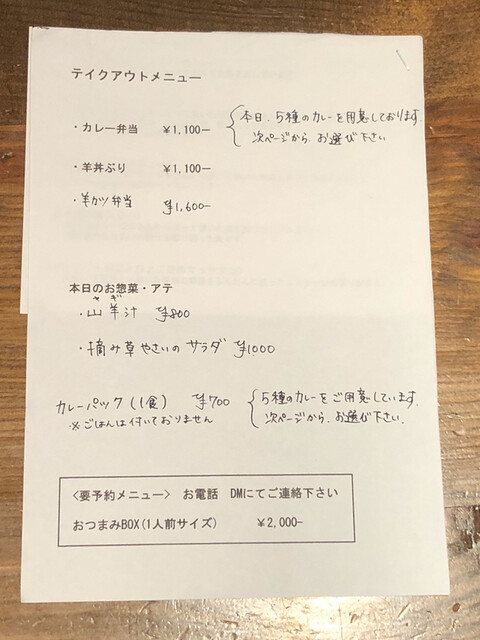 テイクアウトメニュー
・カレー弁当 ￥1,100―
本日、5種のカレーを用意しております。
次ページから、お選び下さい
・羊丼ぶり ￥1,100―
・羊カツ弁当 ￥1,600―
本日のお惣菜・アテ
やぎ
・山羊汁 ￥800
・摘み草やさいのサラダ ￥1000
カレーパック(1食) ￥700
※ごはんは付いておりません
5種のカレーをご用意しています。
次ページから、お選び下さい。
<要予約メニュー> お電話 DMにてご連絡下さい
おつまみBOX(1人前サイズ) ￥2,000―